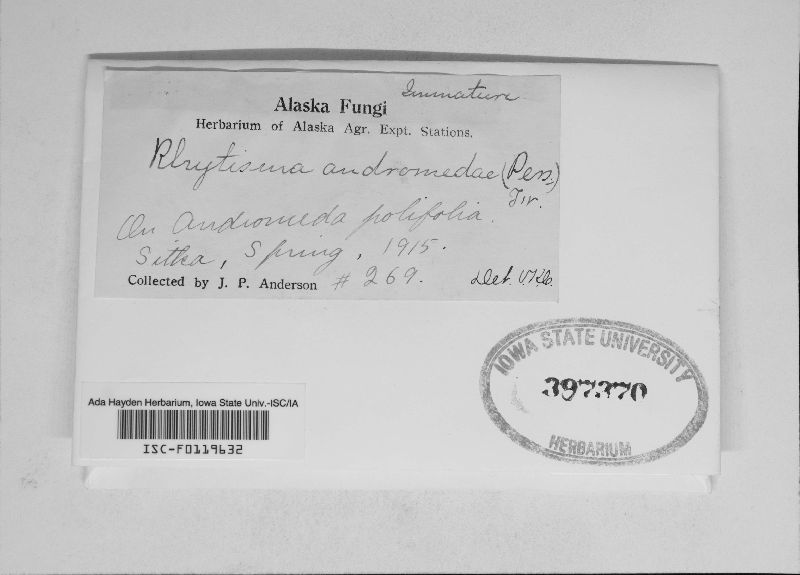 Immature
Alaska Fungi
Herbarium of Alaska Agr. Expt. Stations.
Rhytisma andromedae (Pers.)
Fr.
On Andromeda polifolia.
Sitka, Spring, 1915.
Collected by J. P. Anderson # 269.
Det.
IOWA STATE UNIVERSITY
397370
HERBARIUM
Ada Hayden Herbarium, Iowa State Univ.-ISC/IA
ISC-F0119632